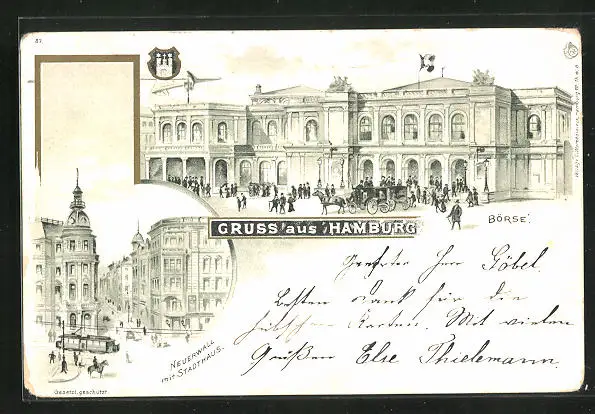 87.
BÖRSE.
GRUSS aus HAMBURG
NEUERWALL
mit STADTHAUS.
Gesetzl. geschützt.
Geehrter Herr Göbel.
Besten Dank für die
hübschen Karten. Mit vielen
Grüßen Else Thielemann.